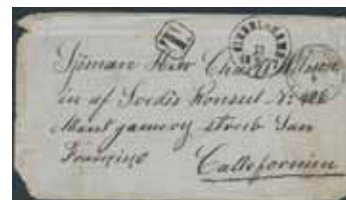 T
Sjöman Herr Charl Nilsson
in af Svedis Konsul No 426
Mantgamery streeb San
Francisco
Callefornien